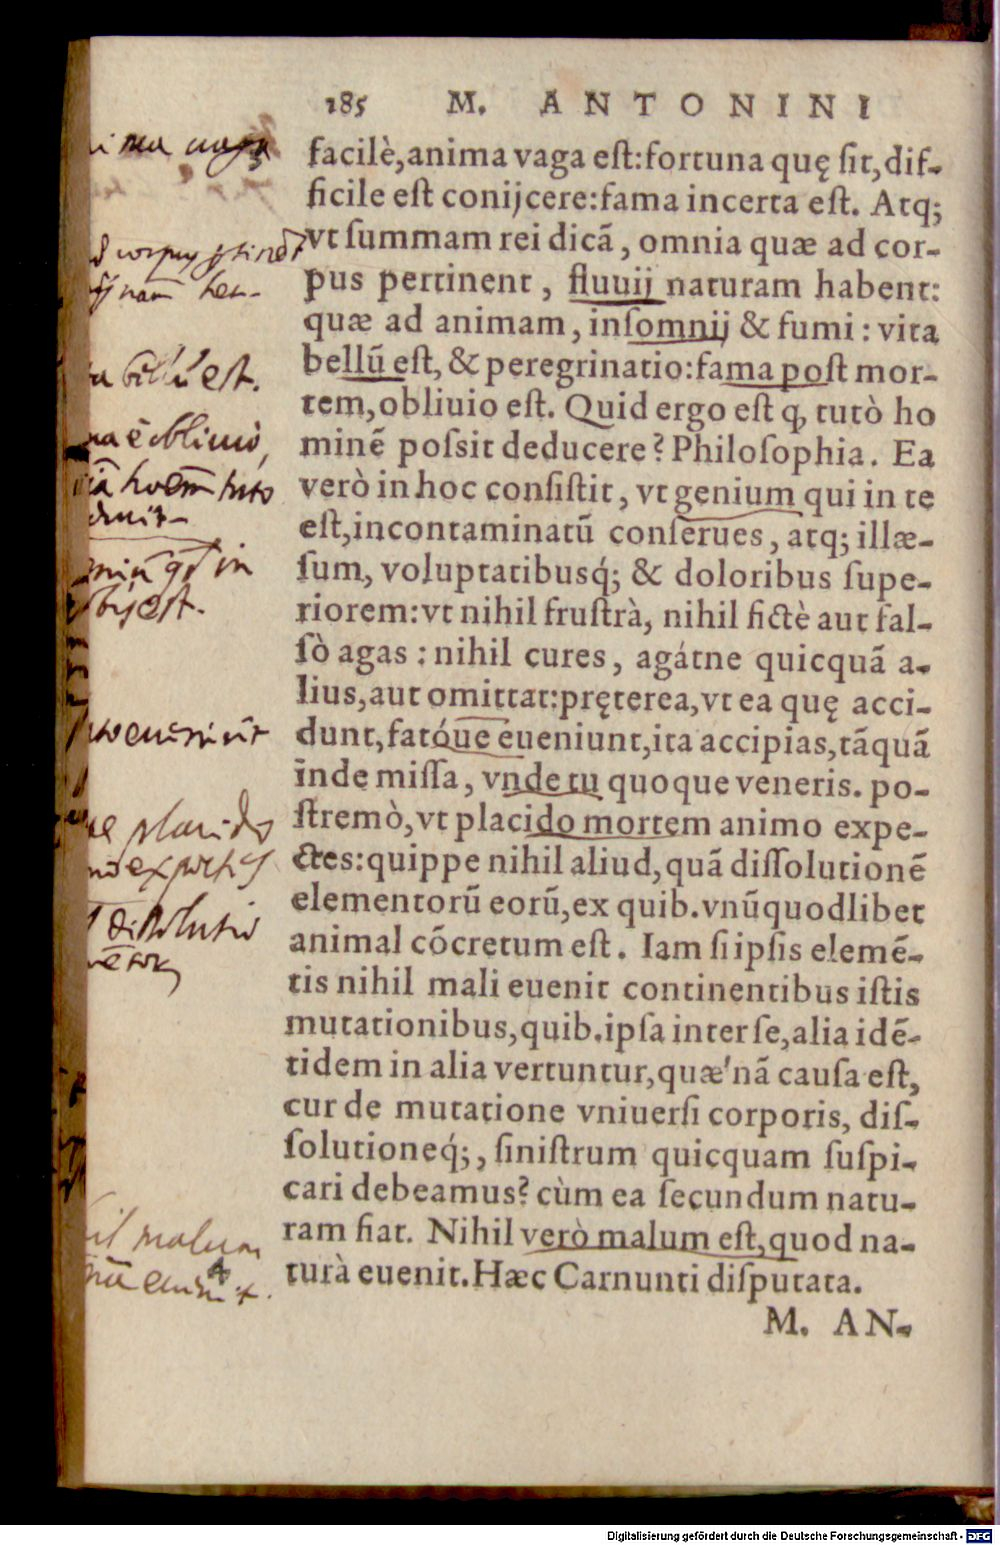 185 M. ANTONINI
facilè,anima vaga eſt:fortuna quę ſit,dif-
ficile eſt conijcere:fama incerta eſt. Atq;
vt ſummam rei dicã, omnia quæ ad cor-
pus pertinent, fluuij naturam habent:
quæ ad animam, inſomnij & fumi: vita
bellũ eſt, & peregrinatio:fama poſt mor-
tem,obliuio eſt. Quid ergo eſt q, tutò ho
minẽ poſsit deducere? Philoſophia. Ea
verò in hoc conſiſtit, vt genium qui in te
eſt,incontaminatũ conſerues, atq; illæ-
ſum, voluptatibusq́; & doloribus ſupe-
riorem:vt nihil fruſtrà, nihil fictè aut fal-
ſò agas: nihil cures, agátne quicquã a-
lius,aut omittat:pręterea,vt ea quę acci-
dunt,fatóue eueniunt,ita accipias,tãquã
inde miſſa, vnde tu quoque veneris. po-
ſtremò,vt placido mortem animo expe-
ctes:quippe nihil aliud,quã diſſolutionẽ
elementorũ eorũ,ex quib.vnũquodlibet
animal cõcretum eſt. Iam ſi ipſis elemẽ-
tis nihil mali euenit continentibus iſtis
mutationibus,quib.ipſa inter ſe,alia idẽ-
tidem in alia vertuntur,quæ'nã cauſa eſt,
cur de mutatione vniuerſi corporis, diſ-
ſolutioneq́;, ſiniſtrum quicquam ſuſpi-
cari debeamus? cùm ea ſecundum natu-
ram fiat. Nihil verò malum eſt,quod na-
turà euenit.Hæc Carnunti diſputata.
M. AN-
est.
oblivio,
hoem tuto
in
est.
placido
dissolutio
malum
Digitalisierung gefördert durch die Deutsche Forschungsgemeinschaft - DFG